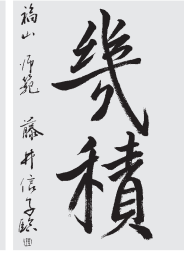 幾積
福山 師範 藤井信子臨